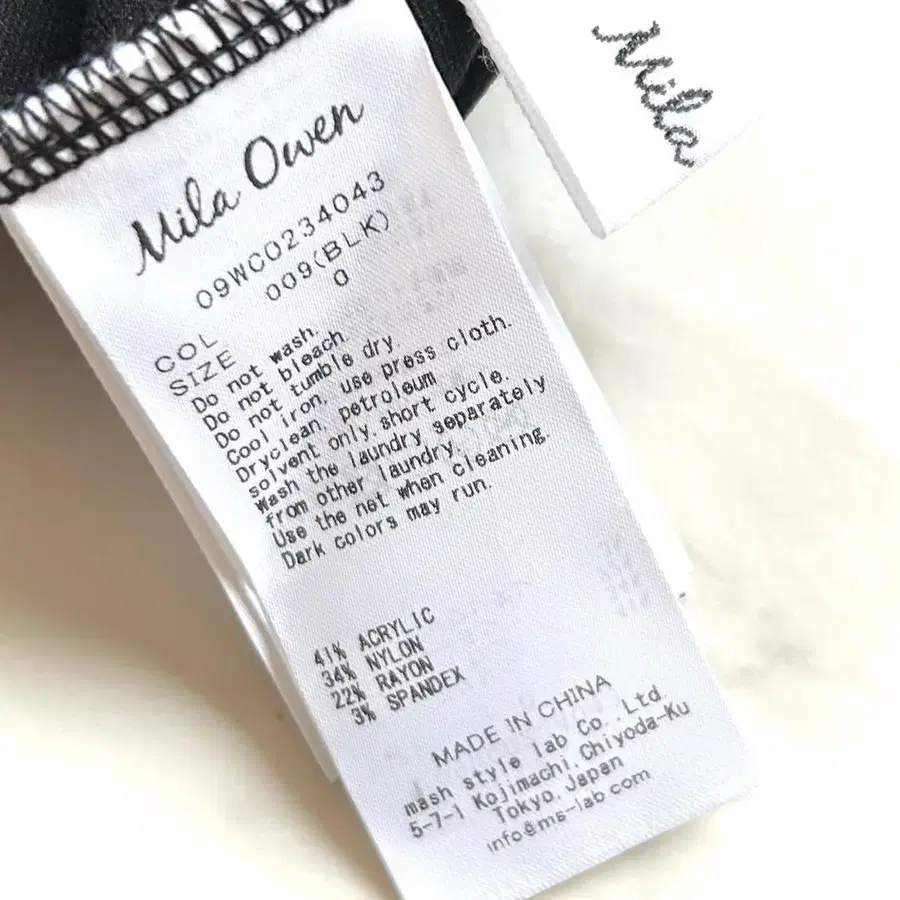 Mila Owen
09WCO234043
COL 009(BLK)
SIZE 0
Do not wash.
Do not bleach.
Do not tumble dry.
Cool iron, use press cloth.
Dryclean, petroleum
solvent only, short cycle.
Wash the laundry separately
from other laundry.
Use the net when cleaning.
Dark colors may run.
41% ACRYLIC
34% NYLON
22% RAYON
3% SPANDEX
MADE IN CHINA
mash style lab Co.,Ltd.
5-7-1 Kojimachi, Chiyoda-Ku
Tokyo, Japan
info@ms-lab.com
Mila